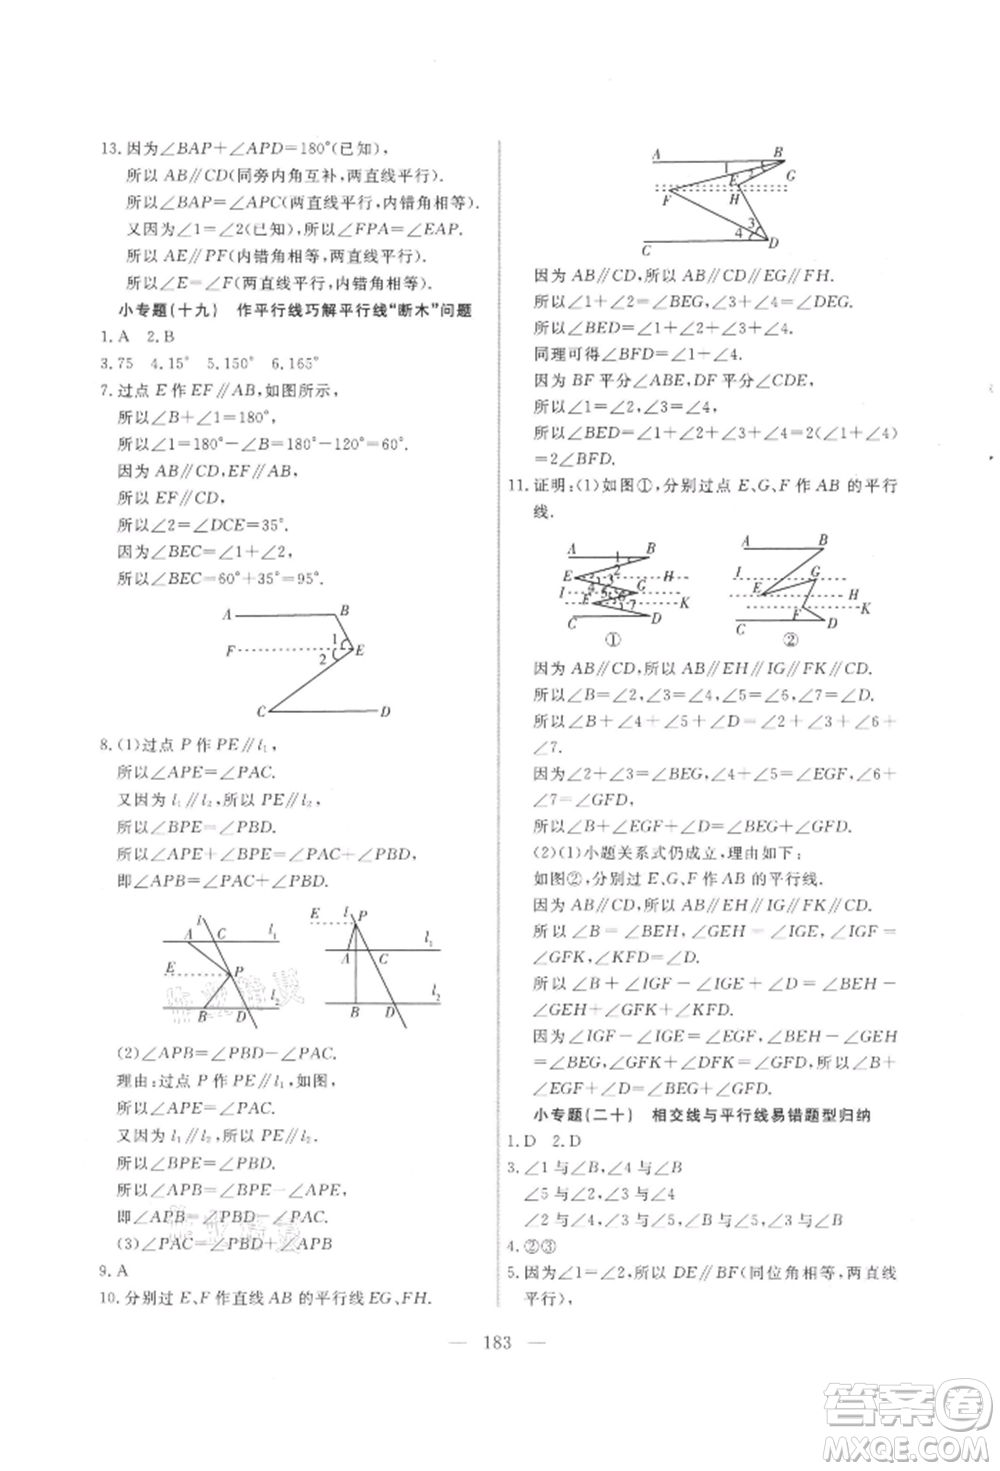 13.因为∠BAP＋∠APD＝180°(已知)，
所以 AB∥CD(同旁内角互补，两直线平行).
所以∠BAP＝∠APC(两直线平行，内错角相等).
又因为∠1＝∠2(已知)，所以∠FPA＝∠EAP.
所以 AE∥PF(内错角相等，两直线平行).
所以∠E＝∠F(两直线平行，内错角相等).
小专题(十九) 作平行线巧解平行线“断木”问题
1.A 2.B
3.75 4.15° 5.150° 6.165°
7.过点 E 作 EF∥AB，如图所示，
所以∠B＋∠1＝180°，
所以∠1＝180°－∠B＝180°－120°＝60°.
因为 AB∥CD，EF∥AB，
所以 EF∥CD，
所以∠2＝∠DCE＝35°.
因为∠BEC＝∠1＋∠2，
所以∠BEC＝60°＋35°＝95°.
A B
F 1 2 E
C D
8.(1)过点 P 作 PE∥l₁，
所以∠APE＝∠PAC.
又因为 l₁∥l₂，所以 PE∥l₂，
所以∠BPE＝∠PBD.
所以∠APE＋∠BPE＝∠PAC＋∠PBD，
即∠APB＝∠PAC＋∠PBD.
l E l P
A C l₁ A C l₁
E P
B D l₂ B D l₂
(2)∠APB＝∠PBD－∠PAC.
理由：过点 P 作 PE∥l₁，如图，
所以∠APE＝∠PAC.
又因为 l₁∥l₂，所以 PE∥l₂，
所以∠BPE＝∠PBD.
所以∠APB＝∠BPE－∠APE，
即∠APB＝∠PBD－∠PAC.
(3)∠PAC＝∠PBD＋∠APB
9.A
10.分别过 E、F 作直线 AB 的平行线 EG、FH.
A B
1 2 E G
F H
3
4
C D
因为 AB∥CD，所以 AB∥CD∥EG∥FH.
所以∠1＋∠2＝∠BEG，∠3＋∠4＝∠DEG.
所以∠BED＝∠1＋∠2＋∠3＋∠4.
同理可得∠BFD＝∠1＋∠4.
因为 BF 平分∠ABE，DF 平分∠CDE，
所以∠1＝∠2，∠3＝∠4，
所以∠BED＝∠1＋∠2＋∠3＋∠4＝2(∠1＋∠4)
＝2∠BFD.
11.证明：(1)如图①，分别过点 E、G、F 作 AB 的平行
线.
A 1 B A B
E 2 3 H I G
I 4 5 6 G E H
F 7 K F K
C D C D
① ②
因为 AB∥CD，所以 AB∥EH∥IG∥FK∥CD.
所以∠B＝∠2，∠3＝∠4，∠5＝∠6，∠7＝∠D.
所以∠B＋∠4＋∠5＋∠D＝∠2＋∠3＋∠6＋
∠7.
因为∠2＋∠3＝∠BEG，∠4＋∠5＝∠EGF，∠6
＋∠7＝∠GFD，
所以∠B＋∠EGF＋∠D＝∠BEG＋∠GFD.
(2)(1)小题关系式仍成立，理由如下：
如图②，分别过 E、G、F 作 AB 的平行线.
因为 AB∥CD，所以 AB∥EH∥IG∥FK∥CD，
所以∠B＝∠BEH，∠GEH＝∠IGE，∠IGF＝
∠GFK，∠KFD＝∠D.
所以∠B＋∠IGF＋∠GEH＋∠D＝∠BEH＋
∠GEH＋∠GFK＋∠KFD.
因为∠IGF－∠IGE＝∠EGF，∠BEH－∠GEH
＝∠BEG，∠GFK＋∠DFK＝∠GFD，所以∠B＋
∠EGF＋∠D＝∠BEG＋∠GFD.
小专题(二十) 相交线与平行线易错题型归纳
1.D 2.D
3.∠1 与∠B、∠4 与∠B
∠5 与∠2、∠3 与∠4
∠2 与∠4、∠5 与∠3、∠5 与∠B
4.②③
5.因为∠1＝∠2，所以 DE∥BF(同位角相等，两直线
平行)，
— 183 —
答案卷
MXQE.COM